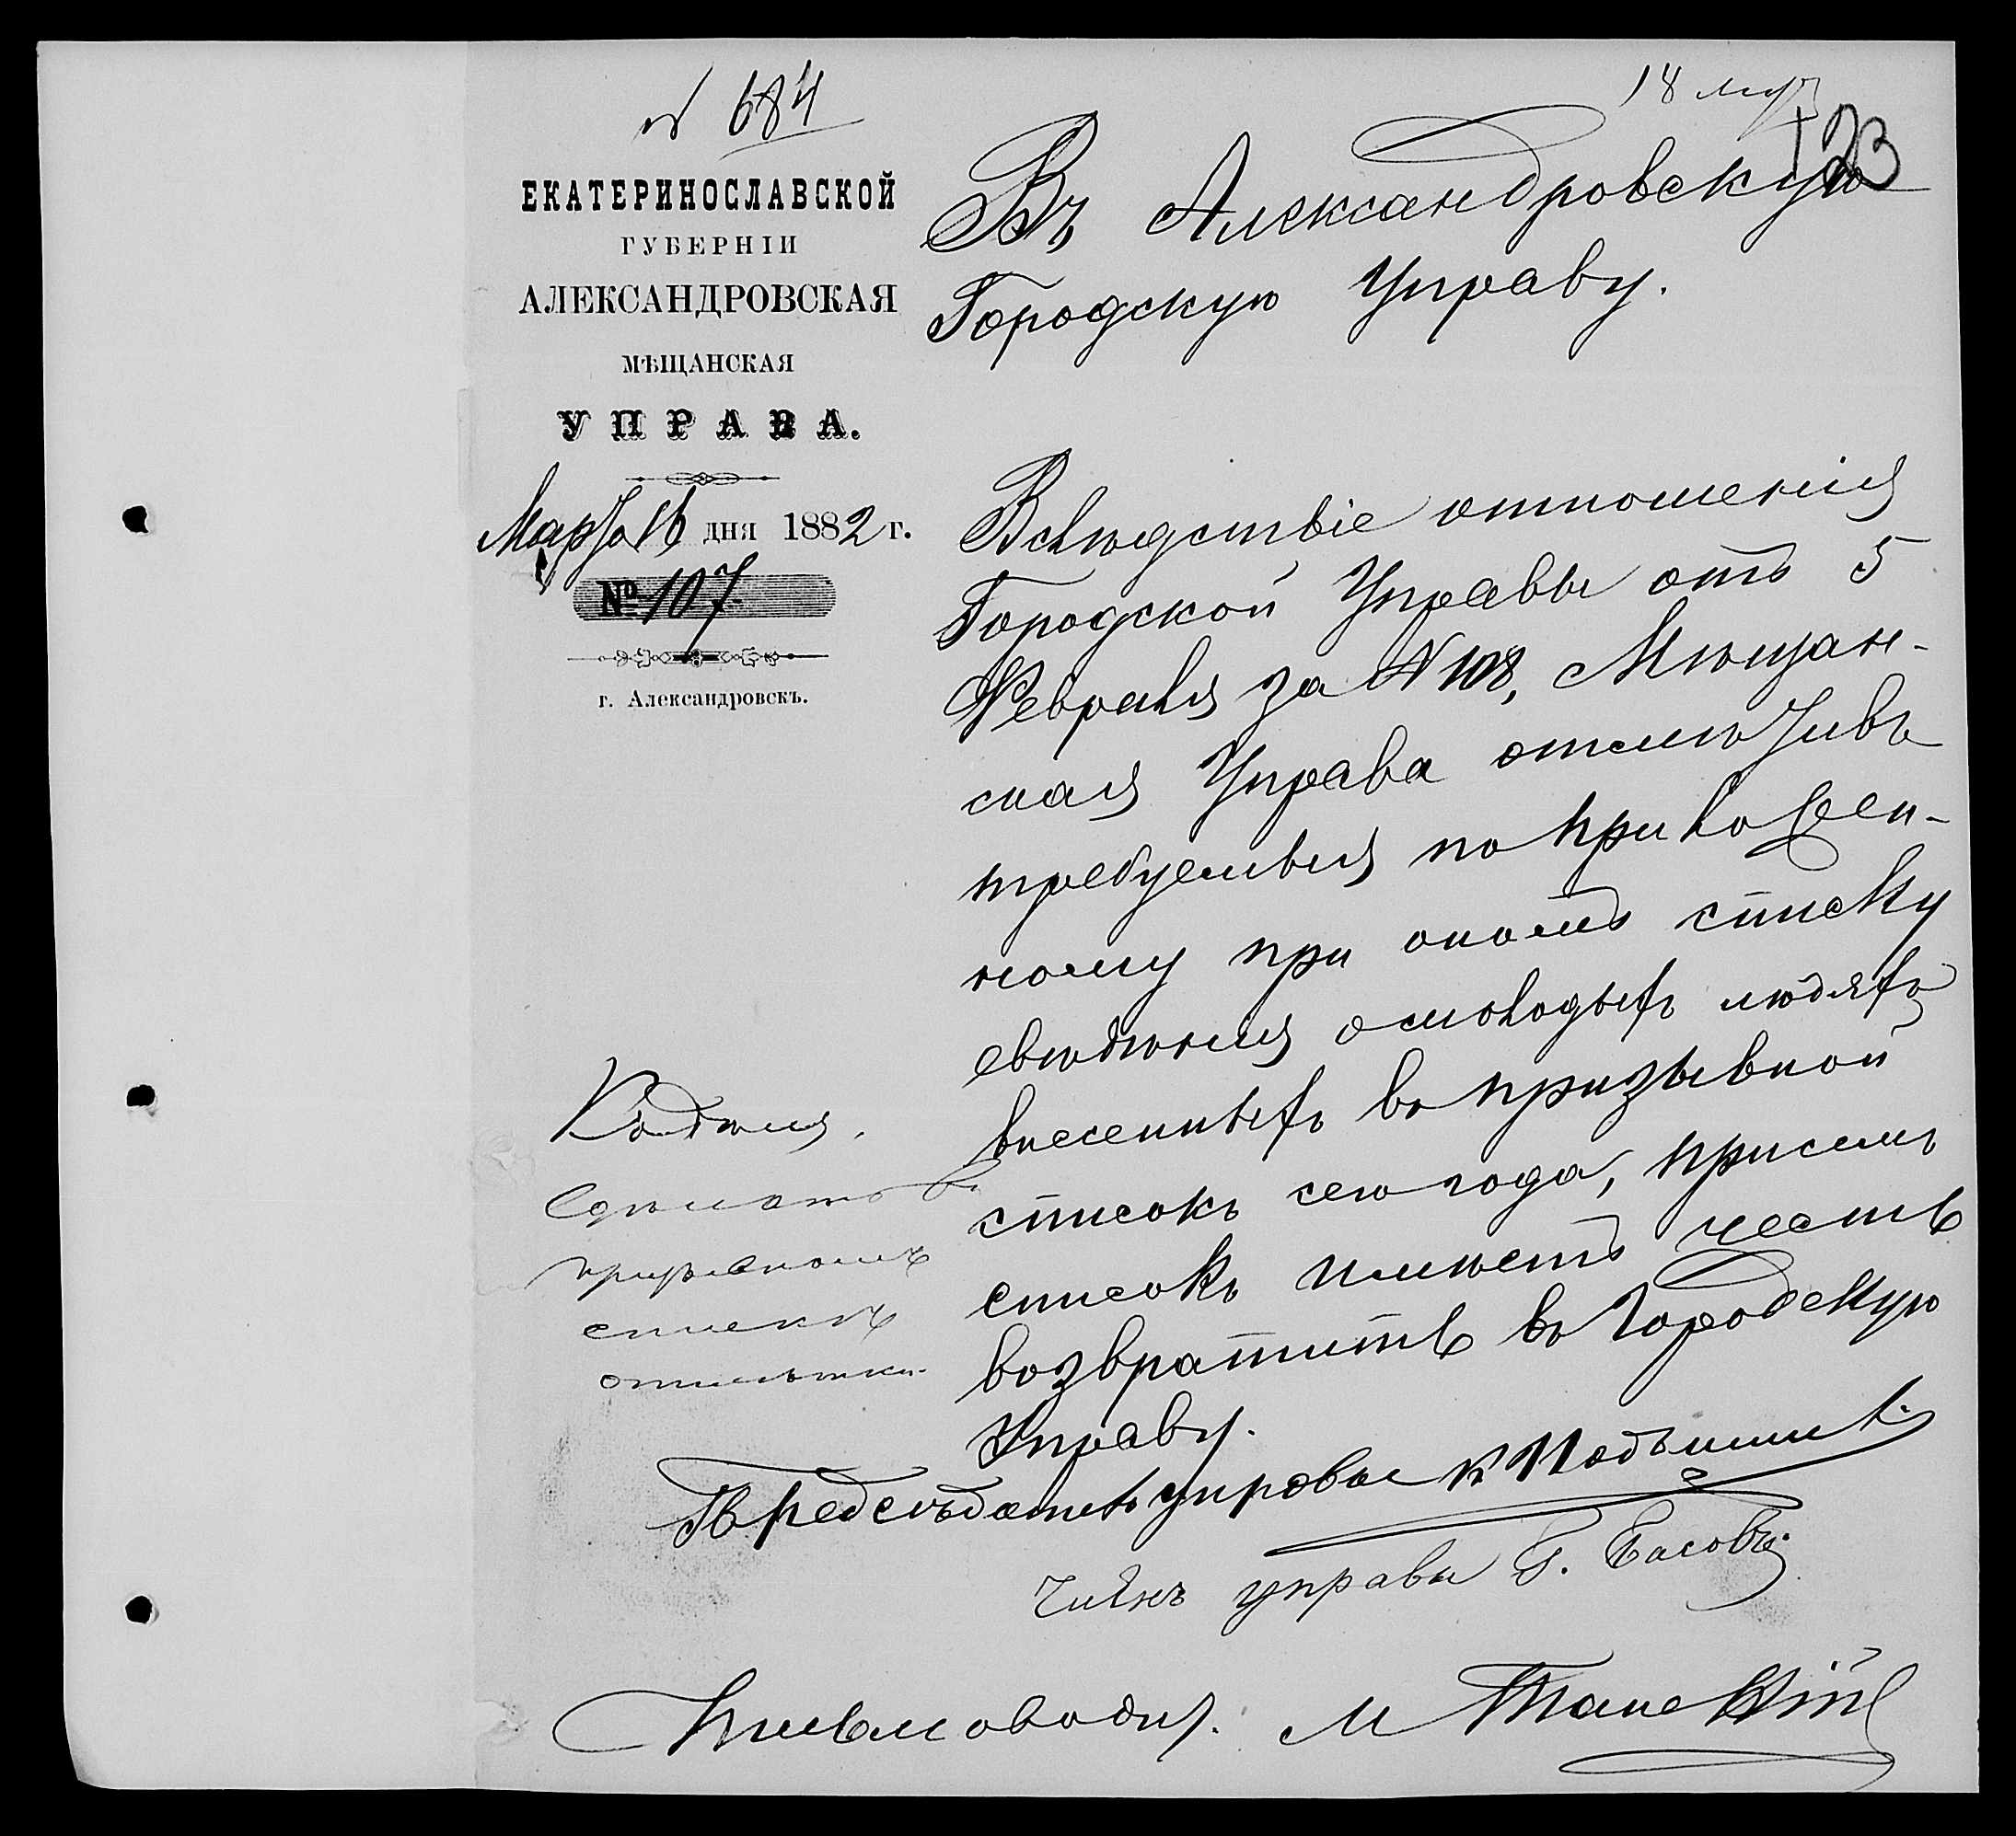 № 684
18 мар
123
ЕКАТЕРИНОСЛАВСКОЙ
ГУБЕРНІИ
АЛЕКСАНДРОВСКАЯ
МѢЩАНСКАЯ
УПРАВА.
Марта 16 дня 1882 г.
№ 107
г. Александровскъ.
Въ Александровскую
Городскую Управу.
Вслѣдствіе отношенія
Городской Управы отъ 5
Февраля за № 108, Мѣщан-
ская Управа отмѣтивъ
требуемыя по приложен-
ному при ономъ списку
свѣдѣнія о молодыхъ людяхъ
внесенныхъ въ призывной
списокъ сего года, при семъ
списокъ имѣетъ честь
возвратить въ Городскую
Управу.
Сдѣлать въ
призывномъ
спискѣ
отмѣтки
Предсѣдатель управы
Членъ управы Г. Басовъ
Письмоводит. М